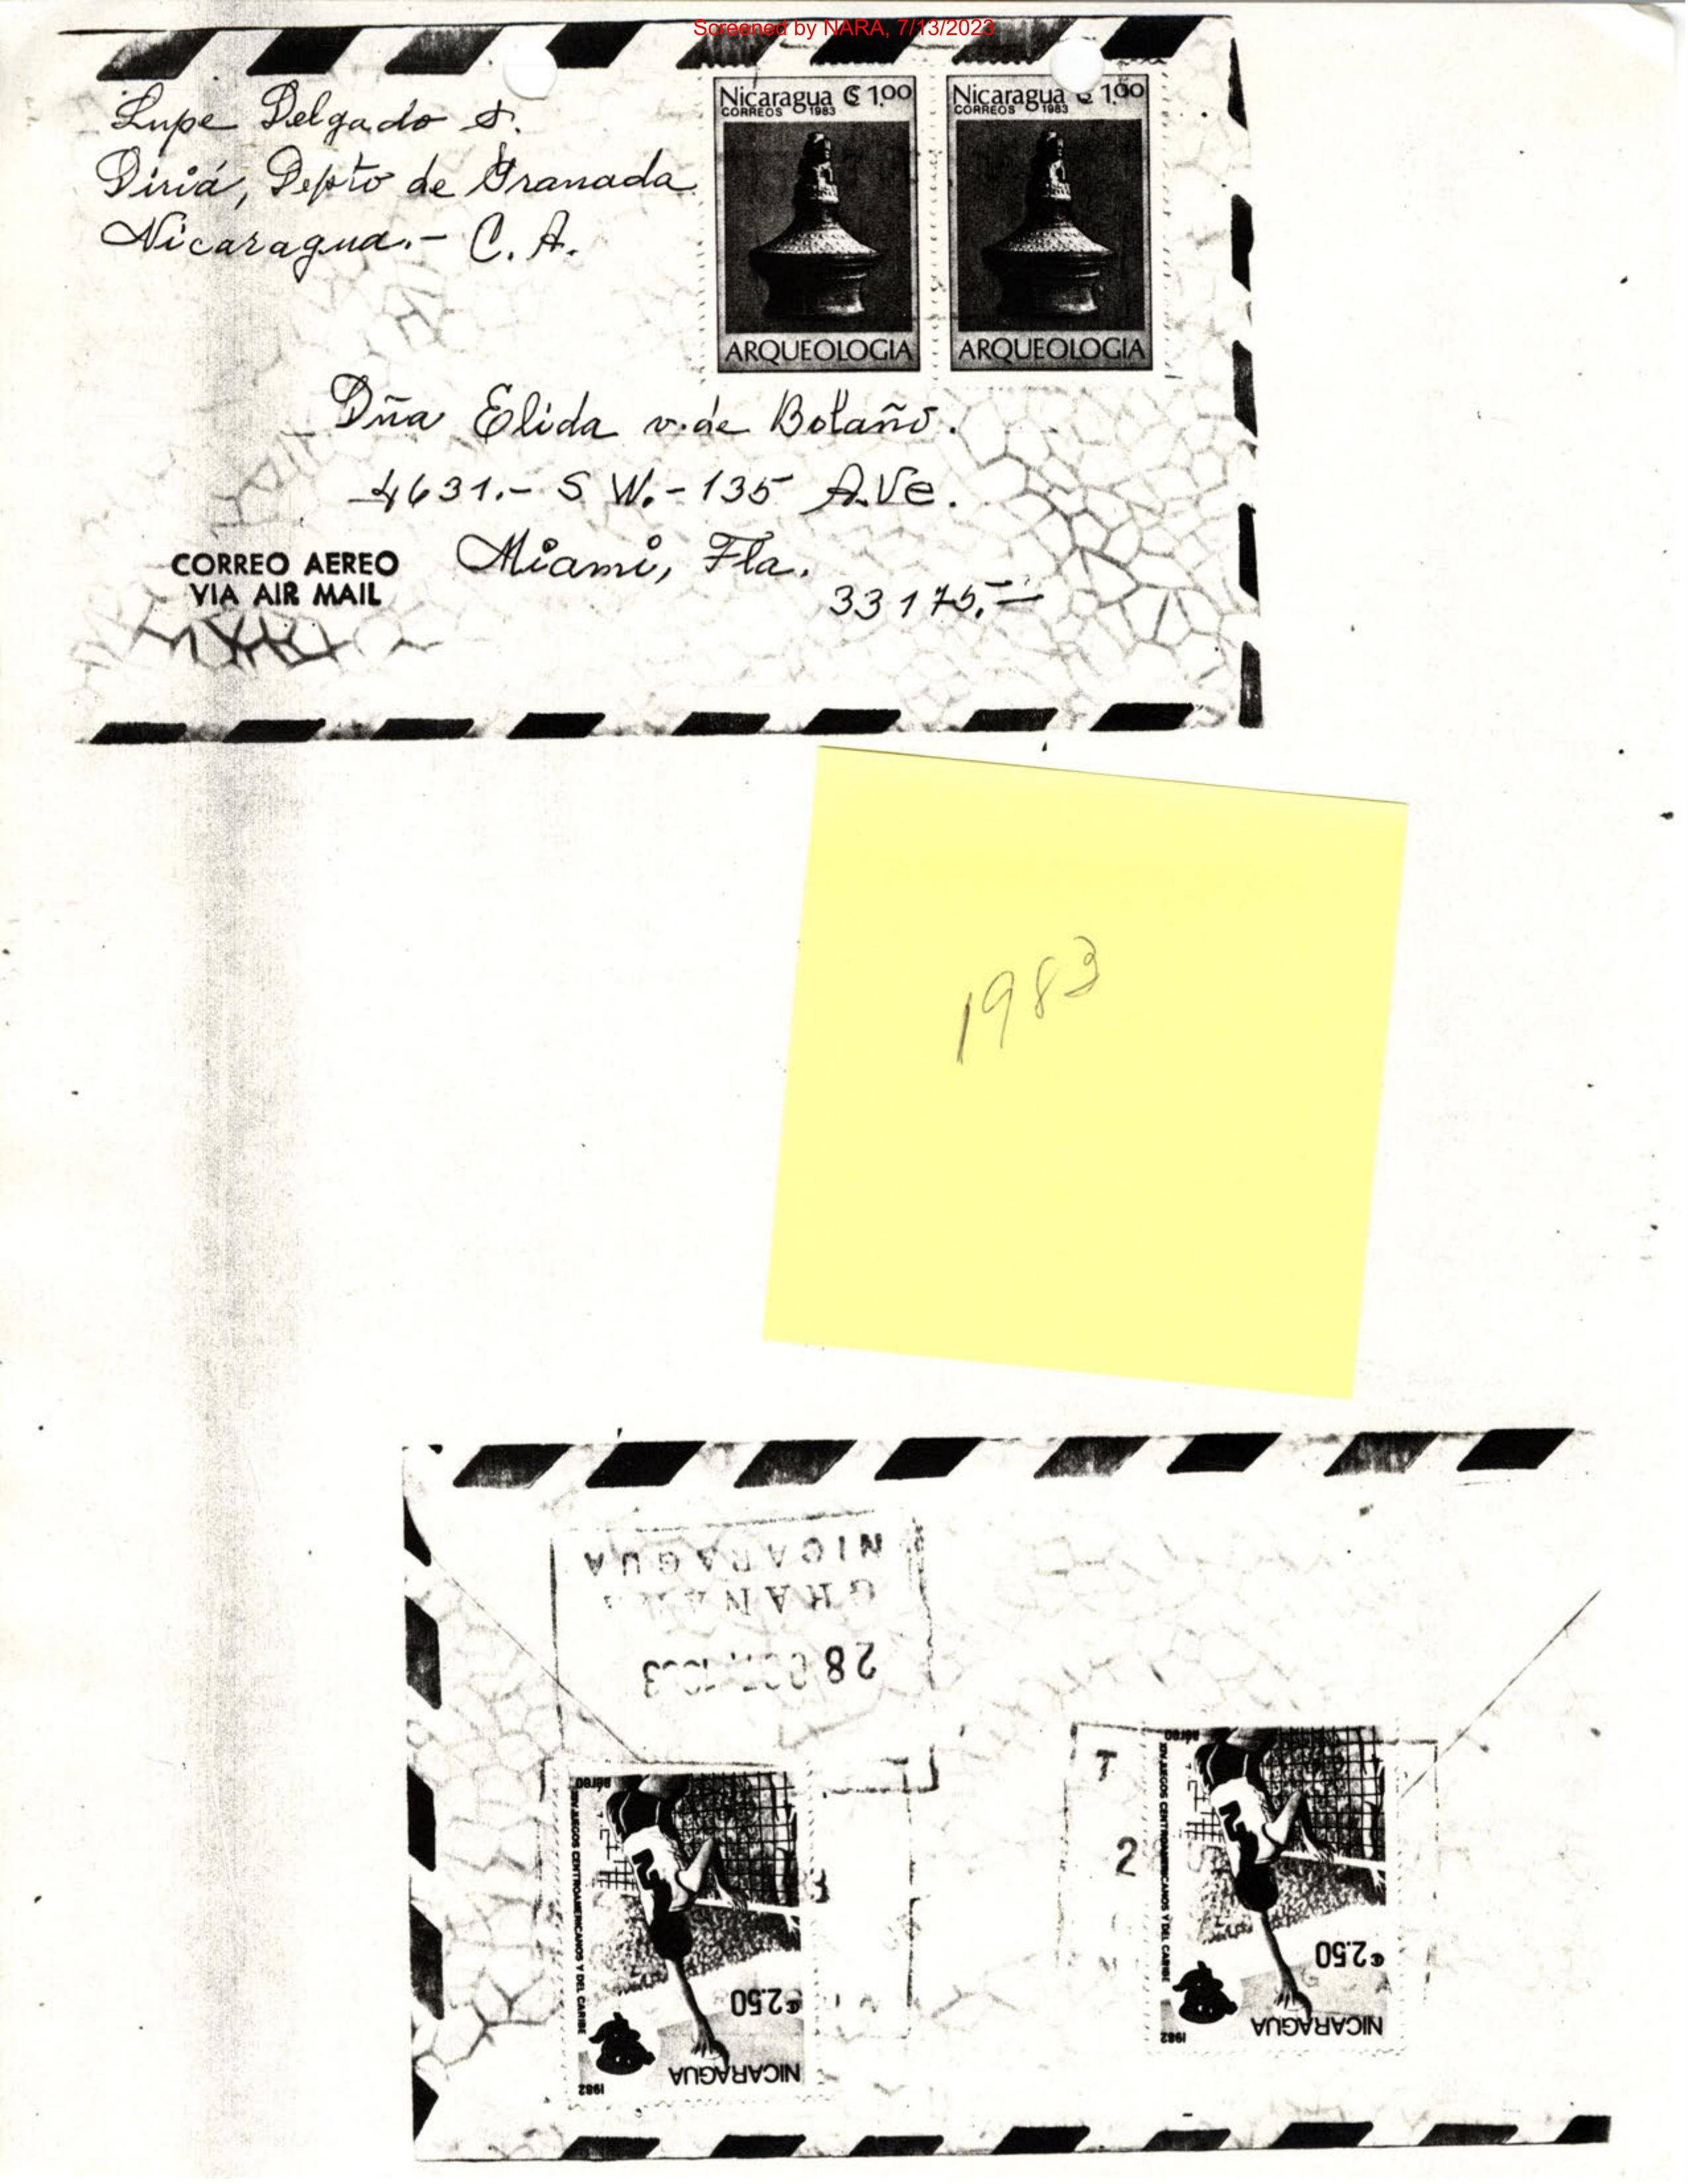 Screened by NARA, 7/13/2023
Lupe Delgado S.
Diriá, Depto de Granada
Nicaragua.- C. A.
Nicaragua ₡ 1.00
CORREOS 1983
ARQUEOLOGIA
Nicaragua ₡ 1.00
CORREOS 1983
ARQUEOLOGIA
Dña Elida v. de Bolaño.
4631.- S W.- 135 AVe.
Miami, Fla.
33175.-
CORREO AEREO
VIA AIR MAIL
1983
NICARAGUA
28
aéreo
XIV JUEGOS CENTROAMERICANOS Y DEL CARIBE
₡2.50
NICARAGUA
1982
aéreo
XIV JUEGOS CENTROAMERICANOS Y DEL CARIBE
₡2.50
NICARAGUA
1982
2